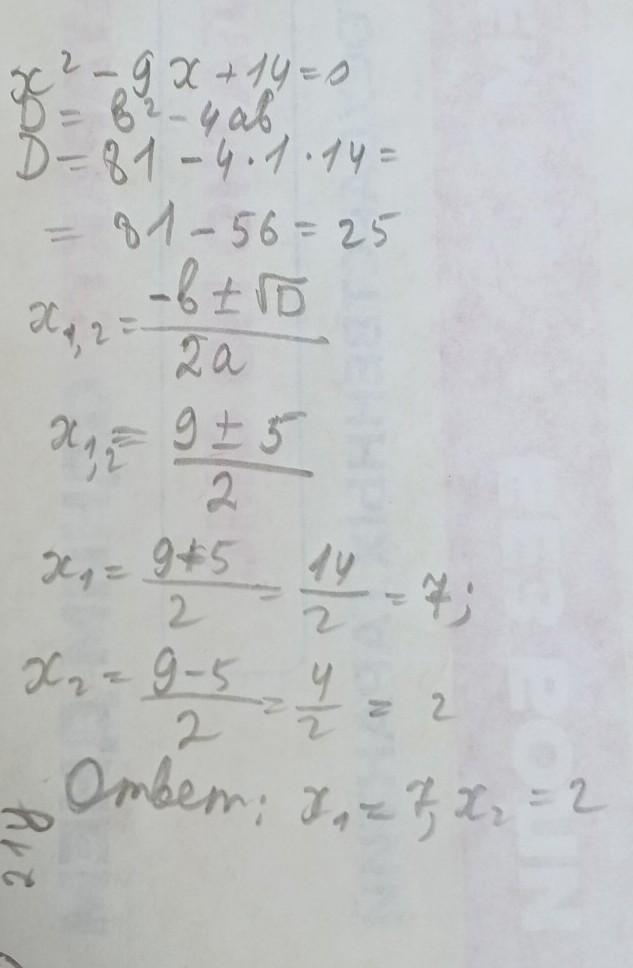 x² - 9x + 14 = 0
D = в² - 4ав
D = 81 - 4 · 1 · 14 =
= 81 - 56 = 25
x₁,₂ = (-в ± √D) / 2а
x₁,₂ = (9 ± 5) / 2
x₁ = (9+5) / 2 = 14/2 = 7;
x₂ = (9-5) / 2 = 4/2 = 2
Ответ: x₁ = 7, x₂ = 2